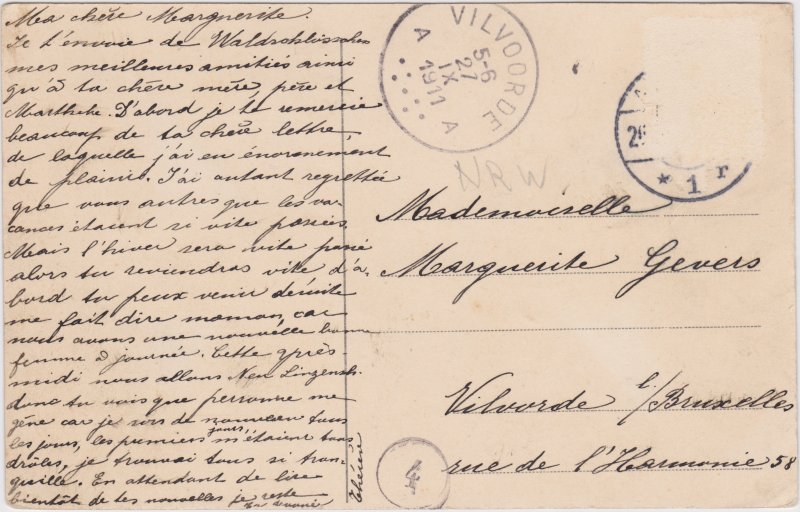 Ma chère Marguerite.
Je t'envoie de Waldschlösschen
mes meilleures amitiés ainsi
qu'à ta chère mère, père et
Marthehe. D'abord je te remercie
beaucoup de ta chère lettre,
de laquelle j'ai eu énormement
de plaisir. J'ai autant regrettée
que vous autres que les va-
cances étaient si vite passées.
Mais l'hiver sera vite passé
alors tu reviendras vite d'a-
bord tu peux venir desuite
me fait dire maman, car
nous avons une nouvelle bonne
femme à journée. Cette après-
midi nous allons Neu
donc tu vois que personne me
gêne car je sors de nouveau tous
les jours, les premiers jours, m'étaient tous
drôles, je trouvai tous si tran-
quille. En attendant de lire
bientôt de tes nouvelles je reste
ta dévouée
VILVOORDE
5-6
27
IX
1911
A A
1 r
NRW
Mademoiselle
Marguerite Gevers
Vilvorde l/Bruxelles
rue de l'Harmonie 58
4